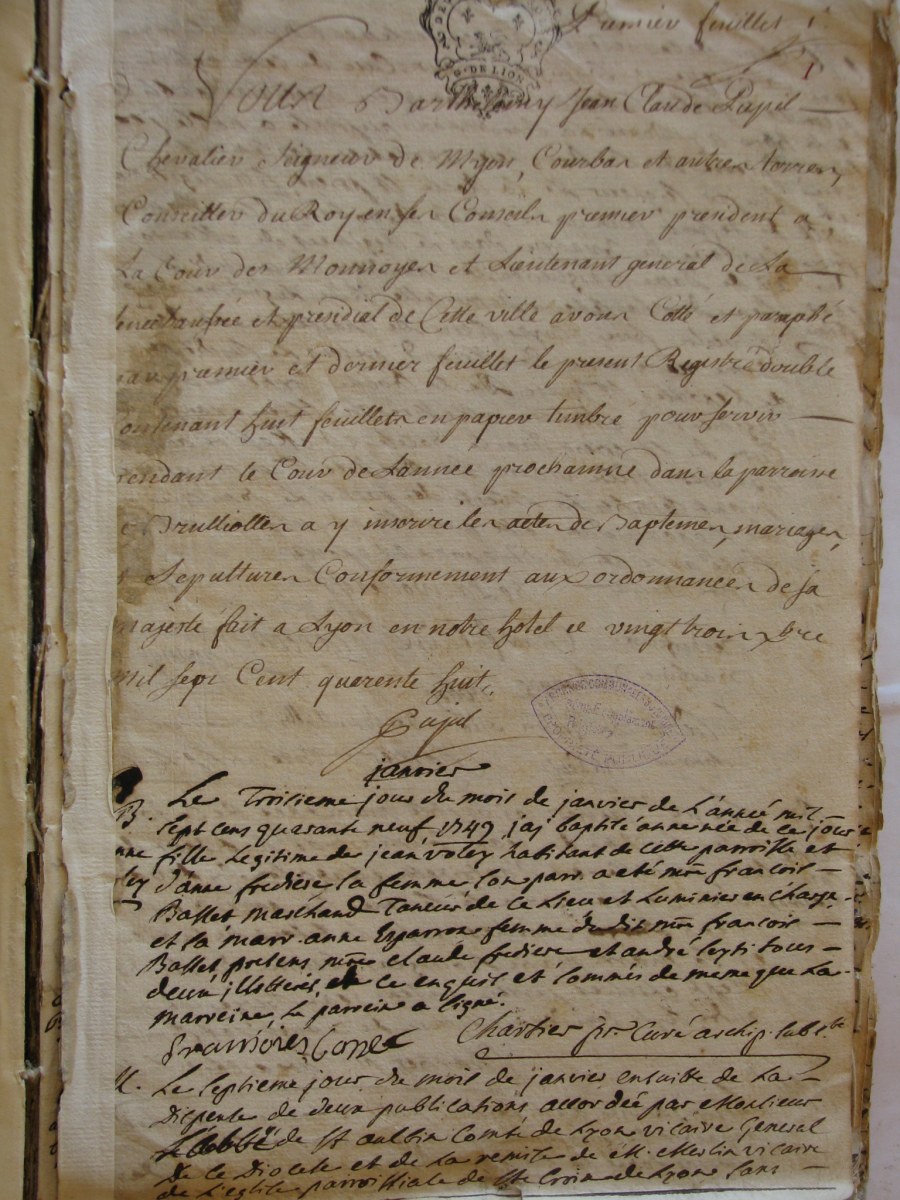 Premier feuillet 1
G. DE LION
Nous Barthelemy Jean Claude Pupil
Chevalier Seigneur de Myon, Courbas et autres terres,
Conseiller du Roy en ses Conseils premier president a
La Cour des Monnoyes et Lieutenant general de La
senechaussée et presidial de Cette ville avons Cotté et paraphé
par premier et dernier feuillet le present Registre double
Contenant huit feuillets en papier timbré pour servir
pendant le Cour de L'année prochainne dans la parroisse
Brulliolles a y inscrire les actes de Baptemes, mariages,
Sepultures Conformement aux ordonnances de sa
majesté fait a Lyon en notre hotel ce vingt trois xbre
mil sept Cent quarente huit.
Pupil
janvier
B. Le Troisieme jour du mois de janvier de L'année mil
sept cens quarante neuf 1749 j'ai baptisé anne née de ce jour
fille Legitime de jean voley habitant de cette parroisse et
d'anne frediere sa femme son parr. a été mre francois
Ballet marchand Taneur de ce Lieu et Luminier en charge
et sa marr. anne Esparron femme du dit mre francois
Ballet, presens mre claude frediere et andré
deux illetterés, de ce enquis et sommés de meme que La
marreine, Le parrein a signé.
Chartier ptre Curé archip. subst.
M. Le septieme jour du mois de janvier ensuitte de La
Dispense de deux publications accordée par Monsieur
L'abbé de St aubin Comte de Lyon vicaire General
De ce Diocese et de La remise de M. Merlin vicaire
de L'eglise parroissiale de Ste Croix de Lyon sans